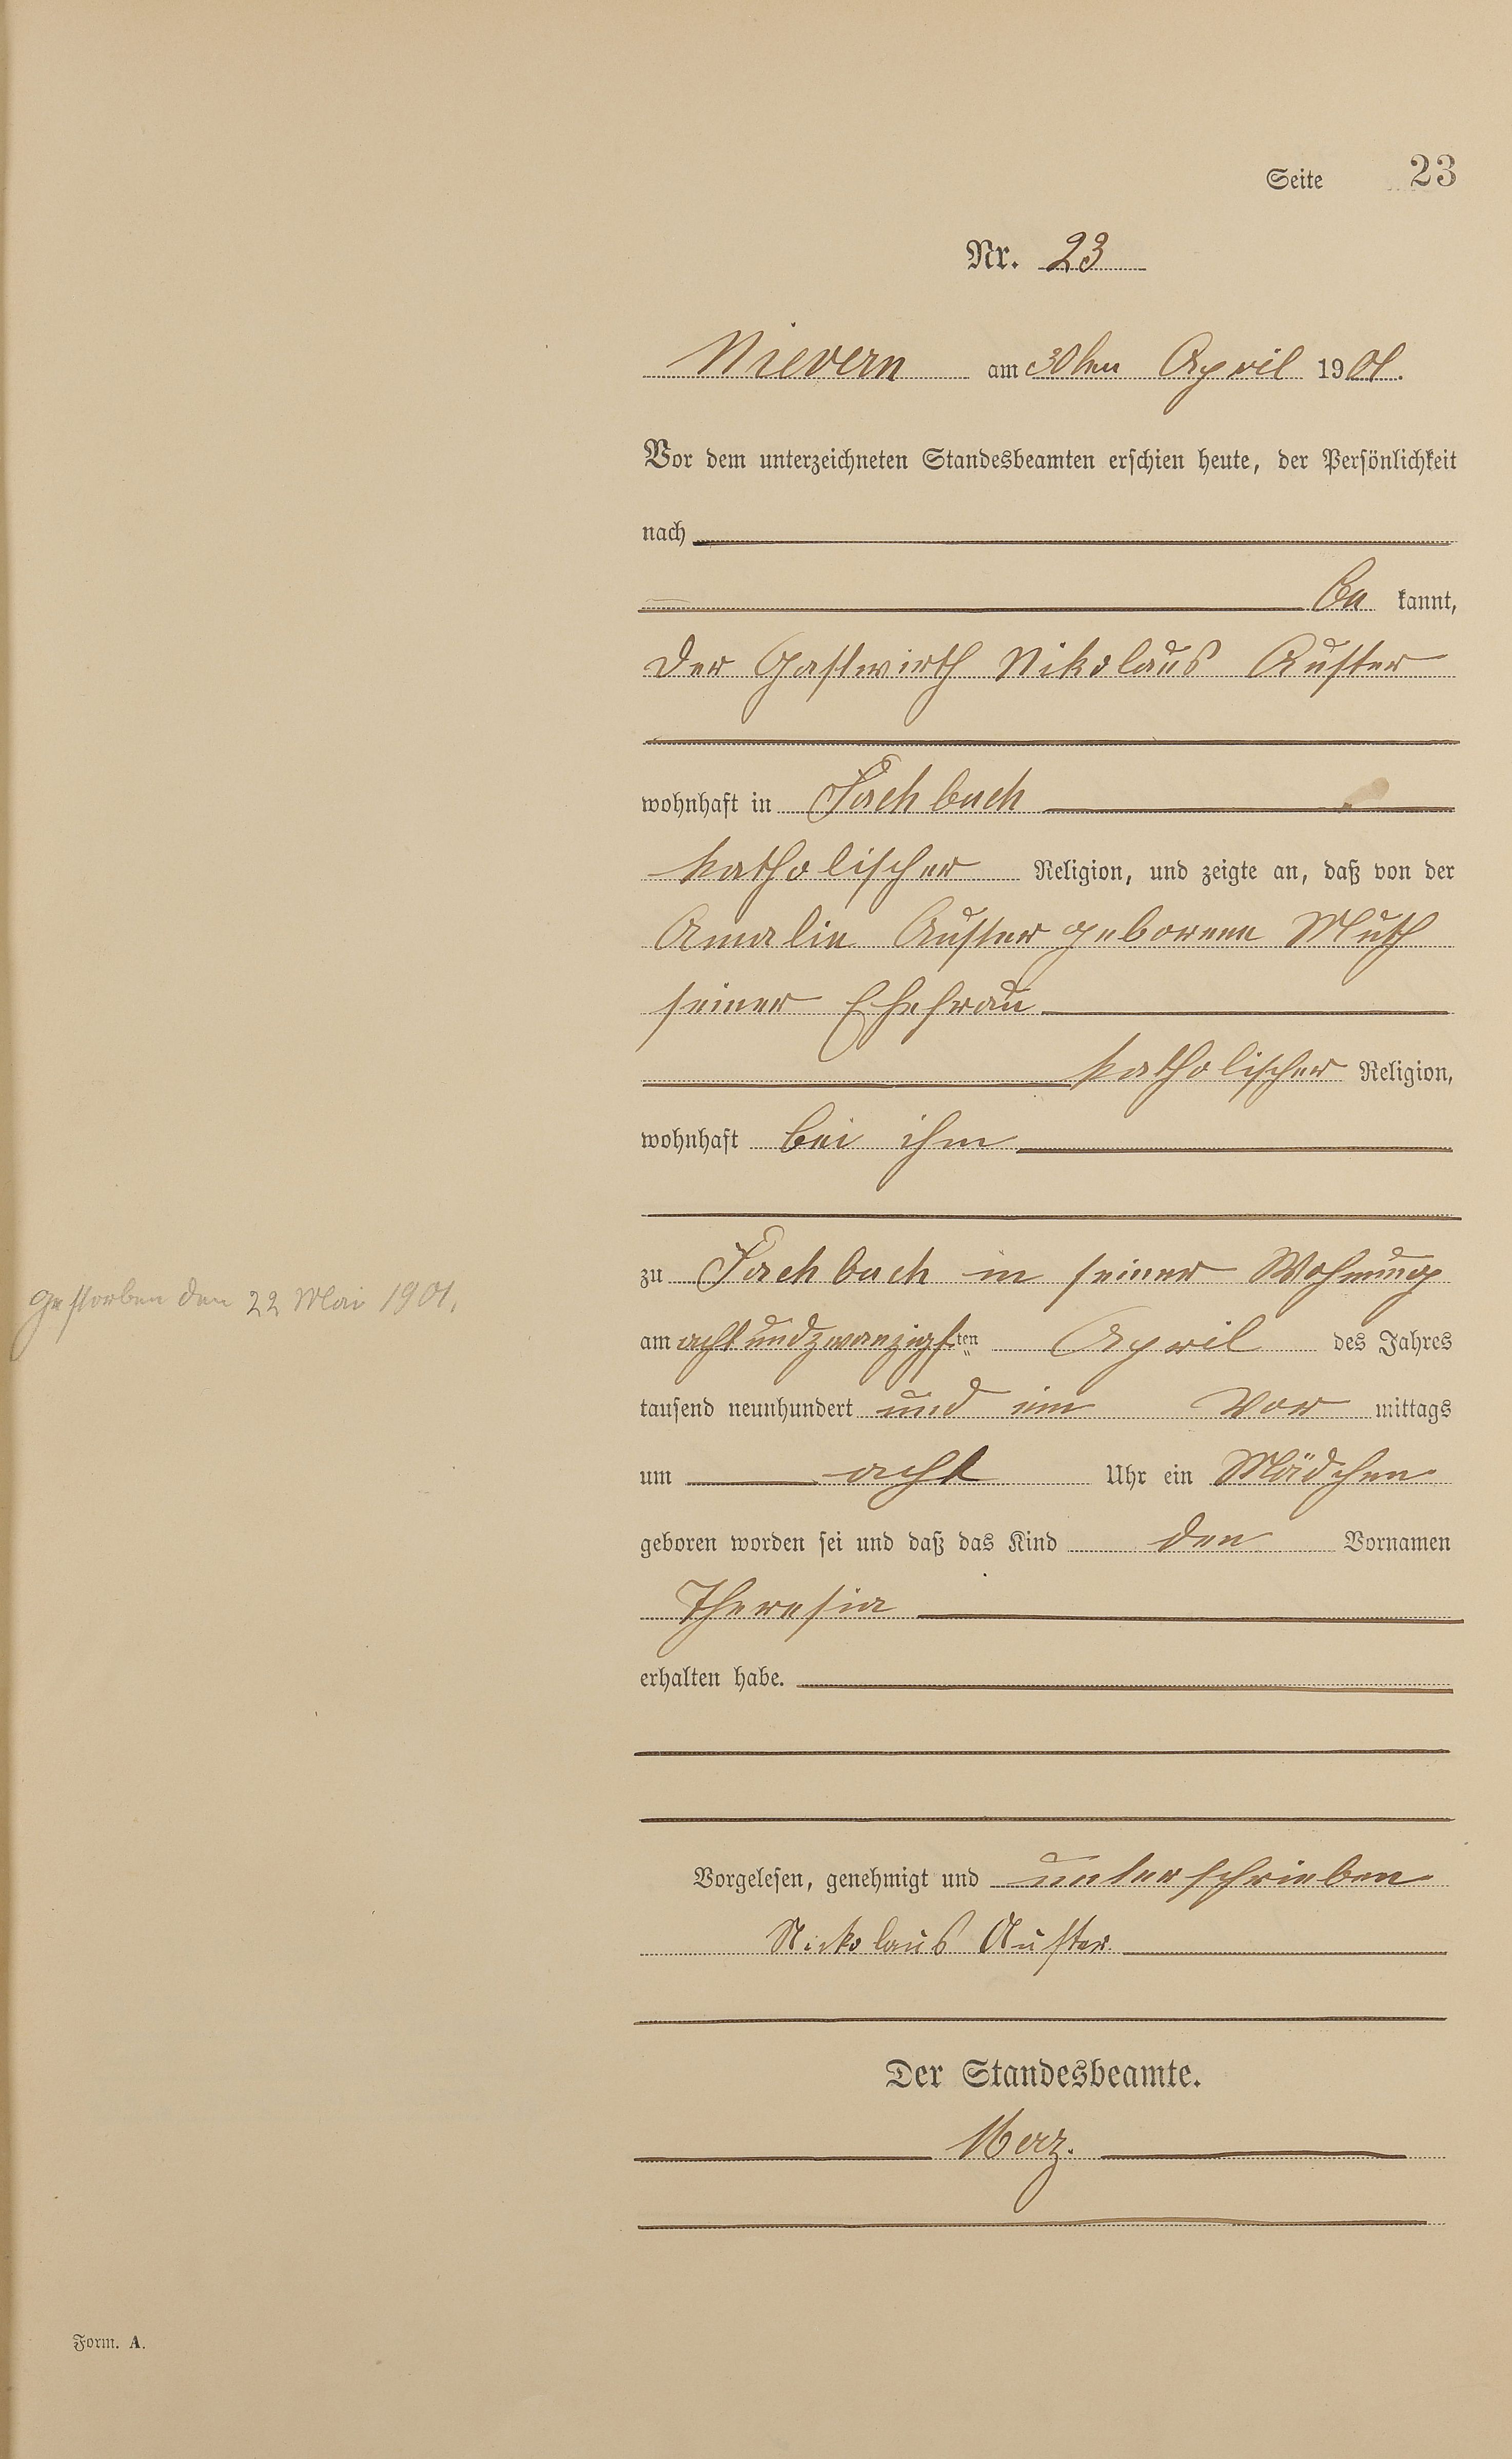 Seite 23
Nr. 23
Nievern am 30ten April 1901.
Vor dem unterzeichneten Standesbeamten erschien heute, der Persönlichkeit
nach
be kannt,
der Gastwirth Nikolaus Auster
wohnhaft in Fachbach
katholischer Religion, und zeigte an, daß von der
Amalie Auster geborene Muth
seiner Ehefrau
katholischer Religion,
wohnhaft bei ihm
zu Fachbach in seiner Wohnung
gestorben den 22 Mai 1901.
am acht und zwanzigsten April des Jahres
tausend neunhundert und ein Vor mittags
um acht Uhr ein Mädchen
geboren worden sei und daß das Kind den Vornamen
Theresia
erhalten habe.
Vorgelesen, genehmigt und unterschrieben
Nickolaus Auster.
Der Standesbeamte.
Merz.
Form. A.